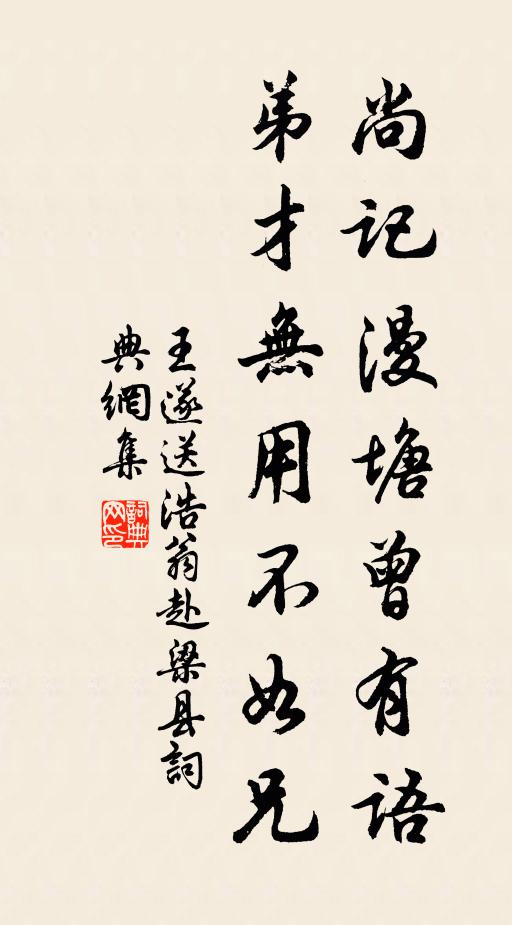 尚记漫塘曾有语
弟才無用不如兄
王遂送浩翁赴梁县詞
典網集
詞典
网印